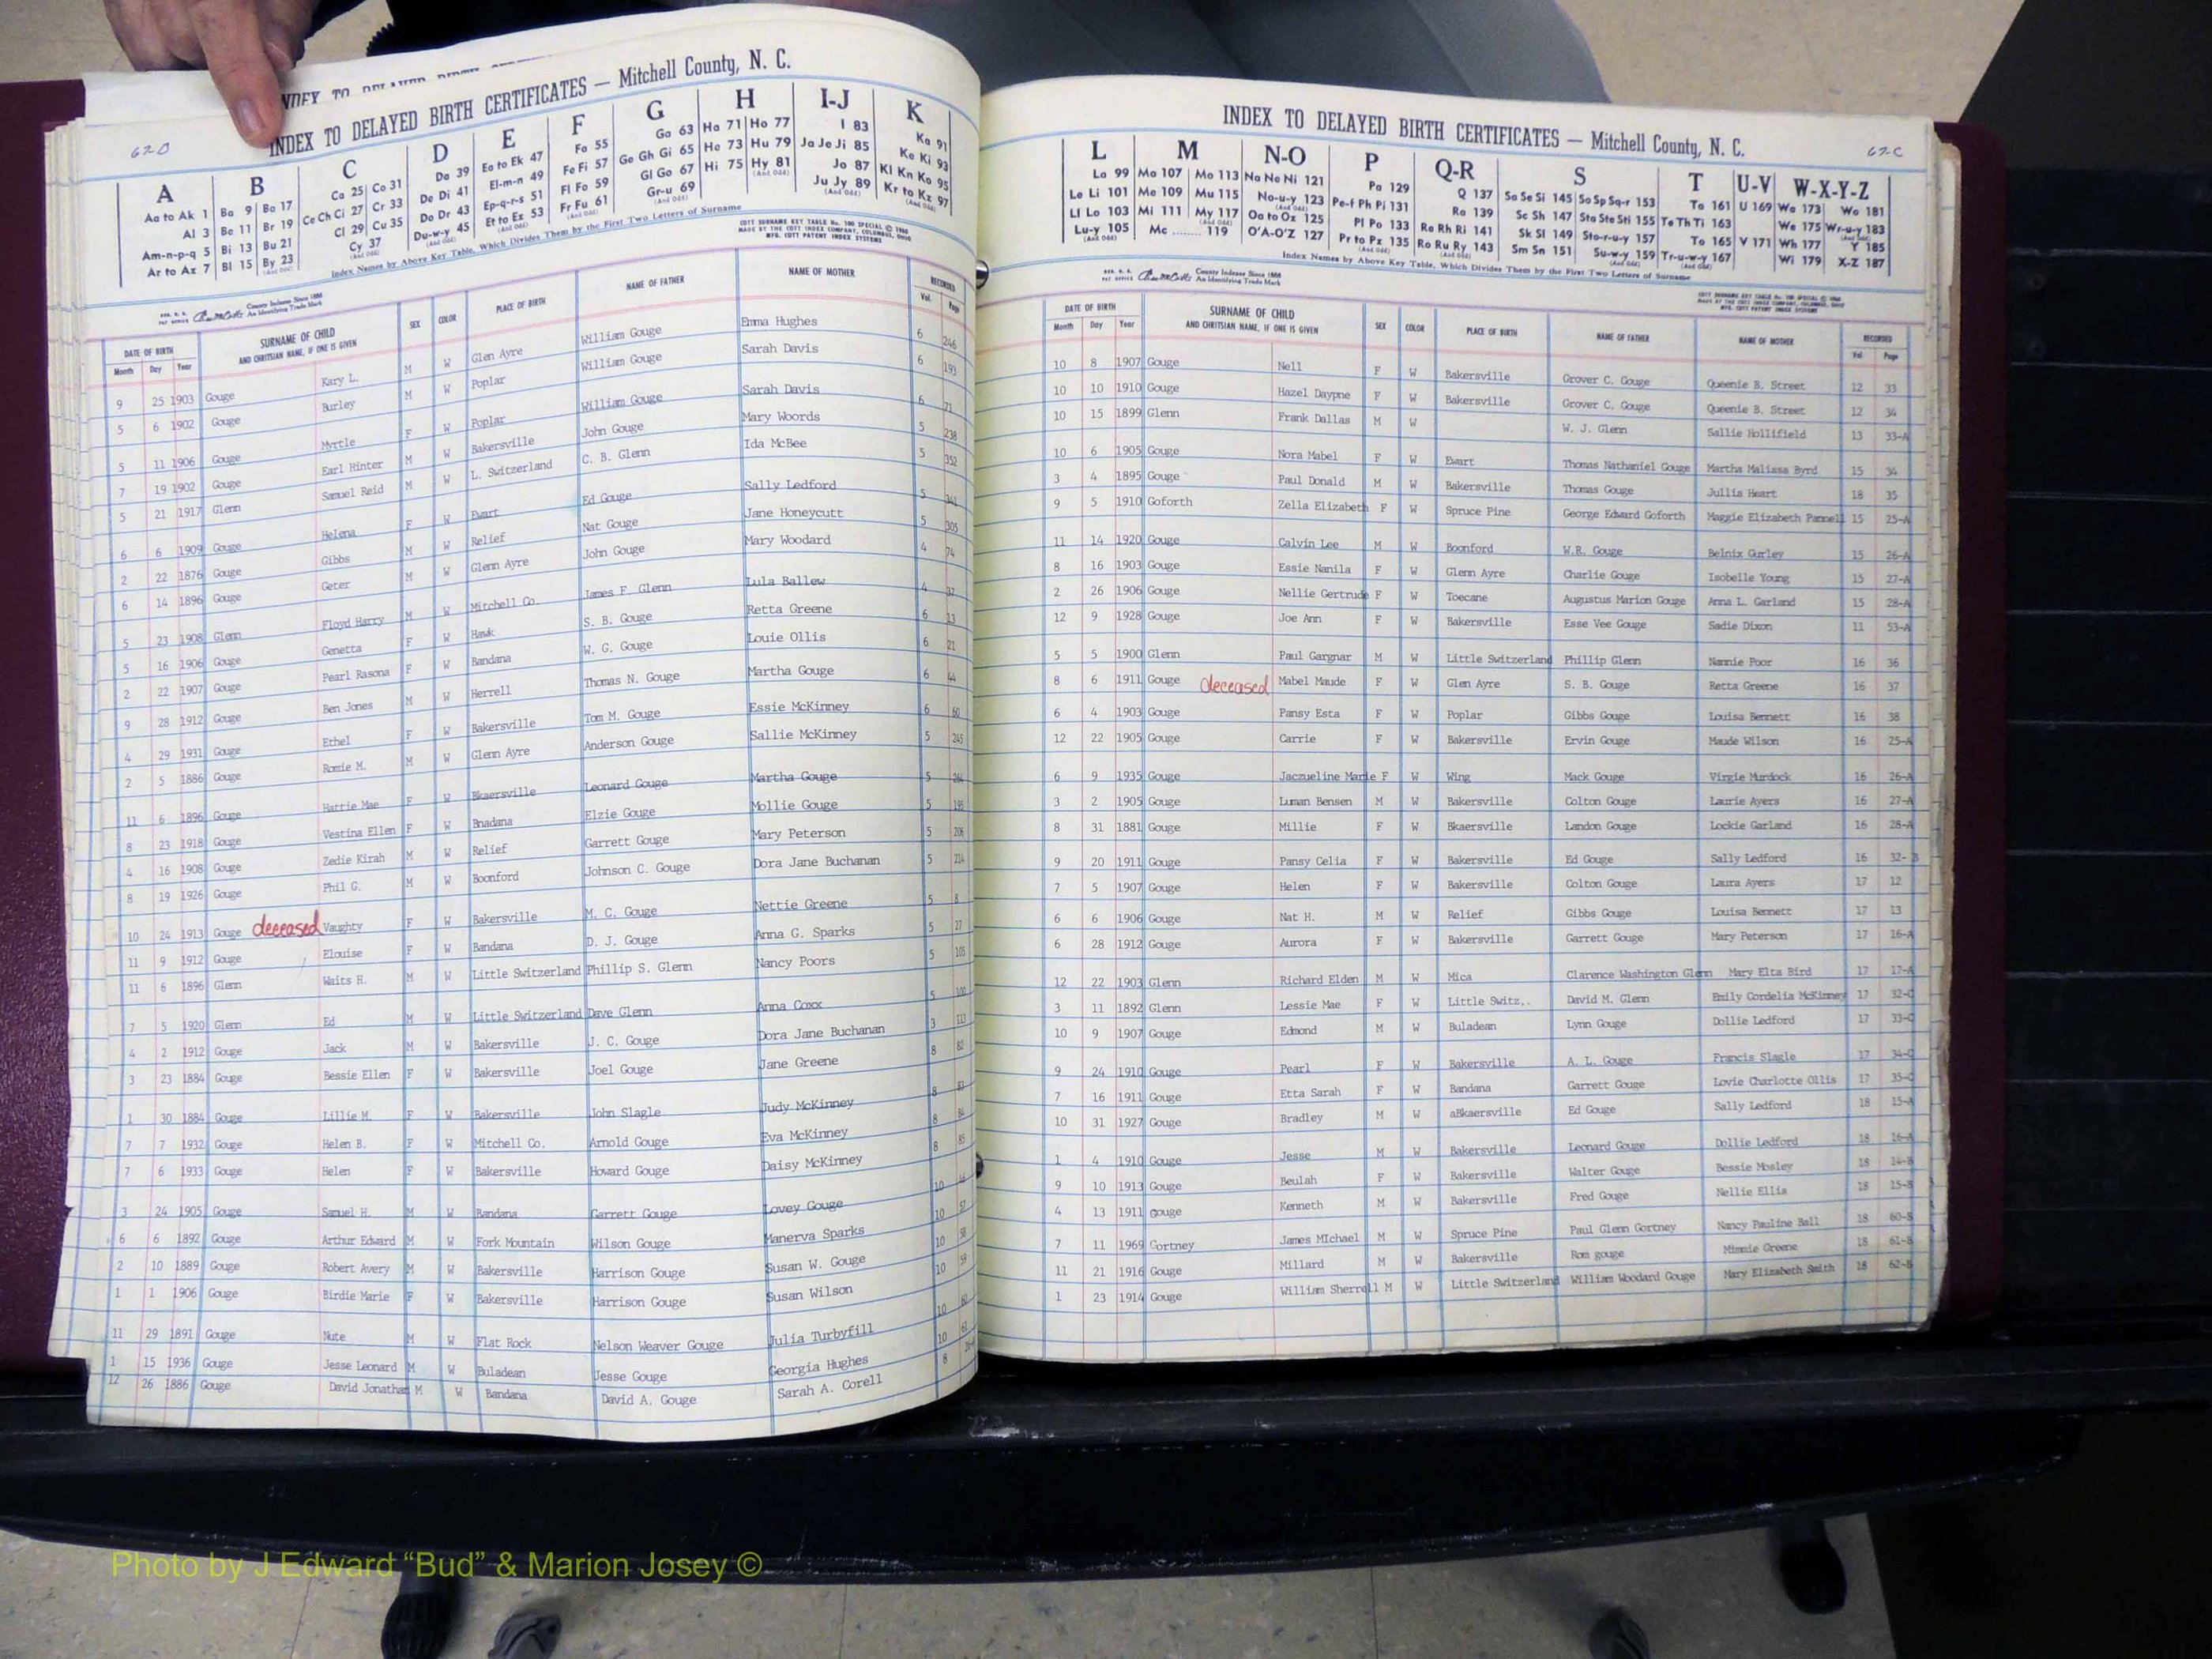 INDEX TO DELAYED BIRTH CERTIFICATES — Mitchell County, N. C.
A B C D E F G H I-J K
Aa to Ak 1 Ba 9 Bo 17 Ca 25 Co 31 Da 39 Ea to Ek 47 Fa 55 Ga 63 Ha 71 Ho 77 I 83 Ka 91
Al 3 Be 11 Br 19 Ce Ch Ci 27 Cr 33 De Di 41 El-m-n 49 Fe Fi 57 Ge Gh Gi 65 He 73 Hu 79 Ja Je Ji 85 Ke Ki 93
Am-n-p-q 5 Bi 13 Bu 21 Cl 29 Cu 35 Do Dr 43 Ep-q-r-s 51 Fl Fo 59 Gl Go 67 Hi 75 Hy 81 Jo 87 Kl Kn Ko 95
Ar to Az 7 Bl 15 By 23 Cy 37 Du-w-y 45 Et to Ez 53 Fr Fu 61 Gr-u 69 Ju Jy 89 Kr to Kz 97
Index Names by Above Key Table, Which Divides Them by the First Two Letters of Surname
DATE OF BIRTH SURNAME OF CHILD SEX COLOR PLACE OF BIRTH NAME OF FATHER NAME OF MOTHER RECORDED
Month Day Year AND CHRITSIAN NAME, IF ONE IS GIVEN Vol. Page
9 25 1903 Gouge Kary L. M W Glen Ayre William Gouge Emma Hughes 6 246
5 6 1902 Gouge Burley M W Poplar William Gouge Sarah Davis 6 193
5 11 1906 Gouge Myrtle F W Poplar William Gouge Sarah Davis 6 71
7 19 1902 Gouge Earl Hinter M W Bakersville John Gouge Mary Woords 5 238
5 21 1917 Glenn Samuel Reid M W L. Switzerland C. B. Glenn Ida McBee 5 352
6 6 1909 Gouge Helena F W Ewart Ed Gouge Sally Ledford 5 341
2 22 1876 Gouge Gibbs M W Relief Nat Gouge Jane Honeycutt 5 305
6 14 1896 Gouge Geter M W Glenn Ayre John Gouge Mary Woodard 4 74
5 23 1908 Glenn Floyd Harry M W Mitchell Co. James F. Glenn Lula Ballew 4 37
5 16 1906 Gouge Genetta F W Hawk S. B. Gouge Retta Greene 6 13
2 22 1907 Gouge Pearl Rasona F W Bandana W. G. Gouge Louie Ollis 6 21
9 28 1912 Gouge Ben Jones M W Herrell Thomas N. Gouge Martha Gouge 6 44
4 29 1931 Gouge Ethel F W Bakersville Tom M. Gouge Essie McKinney 6 60
2 5 1886 Gouge Romie M. M W Glenn Ayre Anderson Gouge Sallie McKinney 5 245
11 6 1896 Gouge Hattie Mae F W Bkaersville Leonard Gouge Martha Gouge 5 264
8 23 1918 Gouge Vestina Ellen F W Bnadana Elzie Gouge Mollie Gouge 5 195
4 16 1908 Gouge Zedie Kirah M W Relief Garrett Gouge Mary Peterson 5 206
8 19 1926 Gouge Phil G. M W Boonford Johnson C. Gouge Dora Jane Buchanan 5 214
10 24 1913 Gouge deceased Vaughty F W Bakersville M. C. Gouge Nettie Greene 5 8
11 9 1912 Gouge Elouise F W Bandana D. J. Gouge Anna G. Sparks 5 27
11 6 1896 Glenn Waits H. M W Little Switzerland Phillip S. Glenn Nancy Poors 5 105
7 5 1920 Glenn Ed M W Little Switzerland Dave Glenn Anna Coxx 5 100
4 2 1912 Gouge Jack M W Bakersville J. C. Gouge Dora Jane Buchanan 3 113
3 23 1884 Gouge Bessie Ellen F W Bakersville Joel Gouge Jane Greene 8 82
1 30 1884 Gouge Lillie M. F W Bakersville John Slagle Judy McKinney 8 83
7 7 1932 Gouge Helen B. F W Mitchell Co. Arnold Gouge Eva McKinney 8 84
7 6 1933 Gouge Helen F W Bakersville Howard Gouge Daisy McKinney 8 85
3 24 1905 Gouge Samuel H. M W Bandana Garrett Gouge Lovey Gouge 10
6 6 1892 Gouge Arthur Edward M W Fork Mountain Wilson Gouge Manerva Sparks 10 57
2 10 1889 Gouge Robert Avery M W Bakersville Harrison Gouge Susan W. Gouge 10 58
1 1 1906 Gouge Birdie Marie F W Bakersville Harrison Gouge Susan Wilson 10 59
11 29 1891 Gouge Nute M W Flat Rock Nelson Weaver Gouge Julia Turbyfill 10 60
1 15 1936 Gouge Jesse Leonard M W Buladean Jesse Gouge Georgia Hughes 10 61
12 26 1886 Gouge David Jonathan M W Bandana David A. Gouge Sarah A. Corell 8
INDEX TO DELAYED BIRTH CERTIFICATES — Mitchell County, N. C.
62-C
L M N-O P Q-R S T U-V W-X-Y-Z
La 99 Ma 107 Mo 113 Na Ne Ni 121 Pa 129 Q 137 Sa Se Si 145 So Sp Sq-r 153 Ta 161 U 169 Wa 173 Wo 181
Le Li 101 Me 109 Mu 115 No-u-y 123 Pe-f Ph Pi 131 Ra 139 Sc Sh 147 Sta Ste Sti 155 Te Th Ti 163 We 175 Wr-u-y 183
Ll Lo 103 Mi 111 My 117 Oa to Oz 125 Pl Po 133 Re Rh Ri 141 Sk Sl 149 Sto-r-u-y 157 To 165 V 171 Wh 177 Y 185
Lu-y 105 Mc 119 O'A-O'Z 127 Pr to Pz 135 Ro Ru Ry 143 Sm Sn 151 Su-w-y 159 Tr-u-w-y 167 Wi 179 X-Z 187
Index Names by Above Key Table, Which Divides Them by the First Two Letters of Surname
DATE OF BIRTH SURNAME OF CHILD SEX COLOR PLACE OF BIRTH NAME OF FATHER NAME OF MOTHER RECORDED
Month Day Year AND CHRITSIAN NAME, IF ONE IS GIVEN Vol Page
10 8 1907 Gouge Nell F W Bakersville Grover C. Gouge Queenie B. Street 12 33
10 10 1910 Gouge Hazel Daypne F W Bakersville Grover C. Gouge Queenie B. Street 12 34
10 15 1899 Glenn Frank Dallas M W W. J. Glenn Sallie Hollifield 13 33-A
10 6 1905 Gouge Nora Mabel F W Ewart Thomas Nathaniel Gouge Martha Malissa Byrd 15 34
3 4 1895 Gouge Paul Donald M W Bakersville Thomas Gouge Jullia Heart 18 35
9 5 1910 Goforth Zella Elizabeth F W Spruce Pine George Edward Goforth Maggie Elizabeth Pannell 15 25-A
11 14 1920 Gouge Calvin Lee M W Boonford W.R. Gouge Belnix Gurley 15 26-A
8 16 1903 Gouge Essie Nanila F W Glenn Ayre Charlie Gouge Isobelle Young 15 27-A
2 26 1906 Gouge Nellie Gertrude F W Toecane Augustus Marion Gouge Anna L. Garland 15 28-A
12 9 1928 Gouge Joe Ann F W Bakersville Esse Vee Gouge Sadie Dixon 11 53-A
5 5 1900 Glenn Paul Gargnar M W Little Switzerland Phillip Glenn Nannie Poor 16 36
8 6 1911 Gouge deceased Mabel Maude F W Glen Ayre S. B. Gouge Retta Greene 16 37
6 4 1903 Gouge Pansy Esta F W Poplar Gibbs Gouge Louisa Bennett 16 38
12 22 1905 Gouge Carrie F W Bakersville Ervin Gouge Maude Wilson 16 25-A
6 9 1935 Gouge Jaczueline Marie F W Wing Mack Gouge Virgie Murdock 16 26-A
3 2 1905 Gouge Luman Bensen M W Bakersville Colton Gouge Laurie Ayers 16 27-A
8 31 1881 Gouge Millie F W Bkaersville Landon Gouge Lockie Garland 16 28-A
9 20 1911 Gouge Pansy Celia F W Bakersville Ed Gouge Sally Ledford 16 32-B
7 5 1907 Gouge Helen F W Bakersville Colton Gouge Laura Ayers 17 12
6 6 1906 Gouge Nat H. M W Relief Gibbs Gouge Louisa Bennett 17 13
6 28 1912 Gouge Aurora F W Bakersville Garrett Gouge Mary Peterson 17 16-A
12 22 1903 Glenn Richard Elden M W Mica Clarence Washington Glenn Mary Elta Bird 17 17-A
3 11 1892 Glenn Lessie Mae F W Little Switz,. David M. Glenn Emily Cordelia McKinney 17 32-C
10 9 1907 Gouge Edmond M W Buladean Lynn Gouge Dollie Ledford 17 33-C
9 24 1910 Gouge Pearl F W Bakersville A. L. Gouge Francis Slagle 17 34-C
7 16 1911 Gouge Etta Sarah F W Bandana Garrett Gouge Lovie Charlotte Ollis 17 35-C
10 31 1927 Gouge Bradley M W aBkaersville Ed Gouge Sally Ledford 18 15-A
1 4 1910 Gouge Jesse M W Bakersville Leonard Gouge Dollie Ledford 18 16-A
9 10 1913 Gouge Beulah F W Bakersville Walter Gouge Bessie Mosley 18 14-B
4 13 1911 gouge Kenneth M W Bakersville Fred Gouge Nellie Ellis 18 15-B
7 11 1969 Cortney James MIchael M W Spruce Pine Paul Glenn Gortney Nancy Pauline Ball 18 60-B
11 21 1916 Gouge Millard M W Bakersville Rom gouge Minnie Greene 18 61-B
1 23 1914 Gouge William Sherrell M W Little Switzerland William Woodard Gouge Mary Elizabeth Smith 18 62-B
Photo by J Edward “Bud” & Marion Josey ©